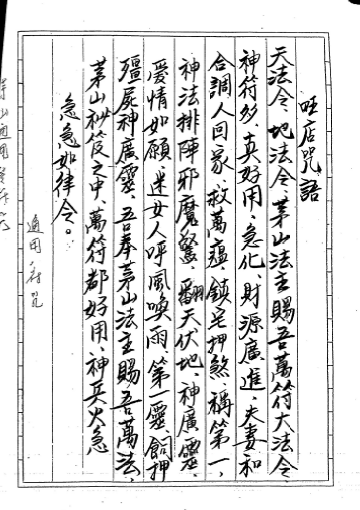 旺店咒語
天法令、地法令、茅山法主賜吾萬符大法令、
神符妙、真好用、急化、財源廣進、夫妻和
合調人回家、救萬瘟、鎮宅押煞、稱第一、
神法排陣邪魔驚、翻天伏地、神廣靈、
愛情如願、迷女人呼風喚雨、第一靈、飼押
殭屍神廣靈、吾奉茅山法主賜吾萬法、
茅山祕笈之中、萬符都好用、神兵火急
急急如律令。
通用
茅山通用